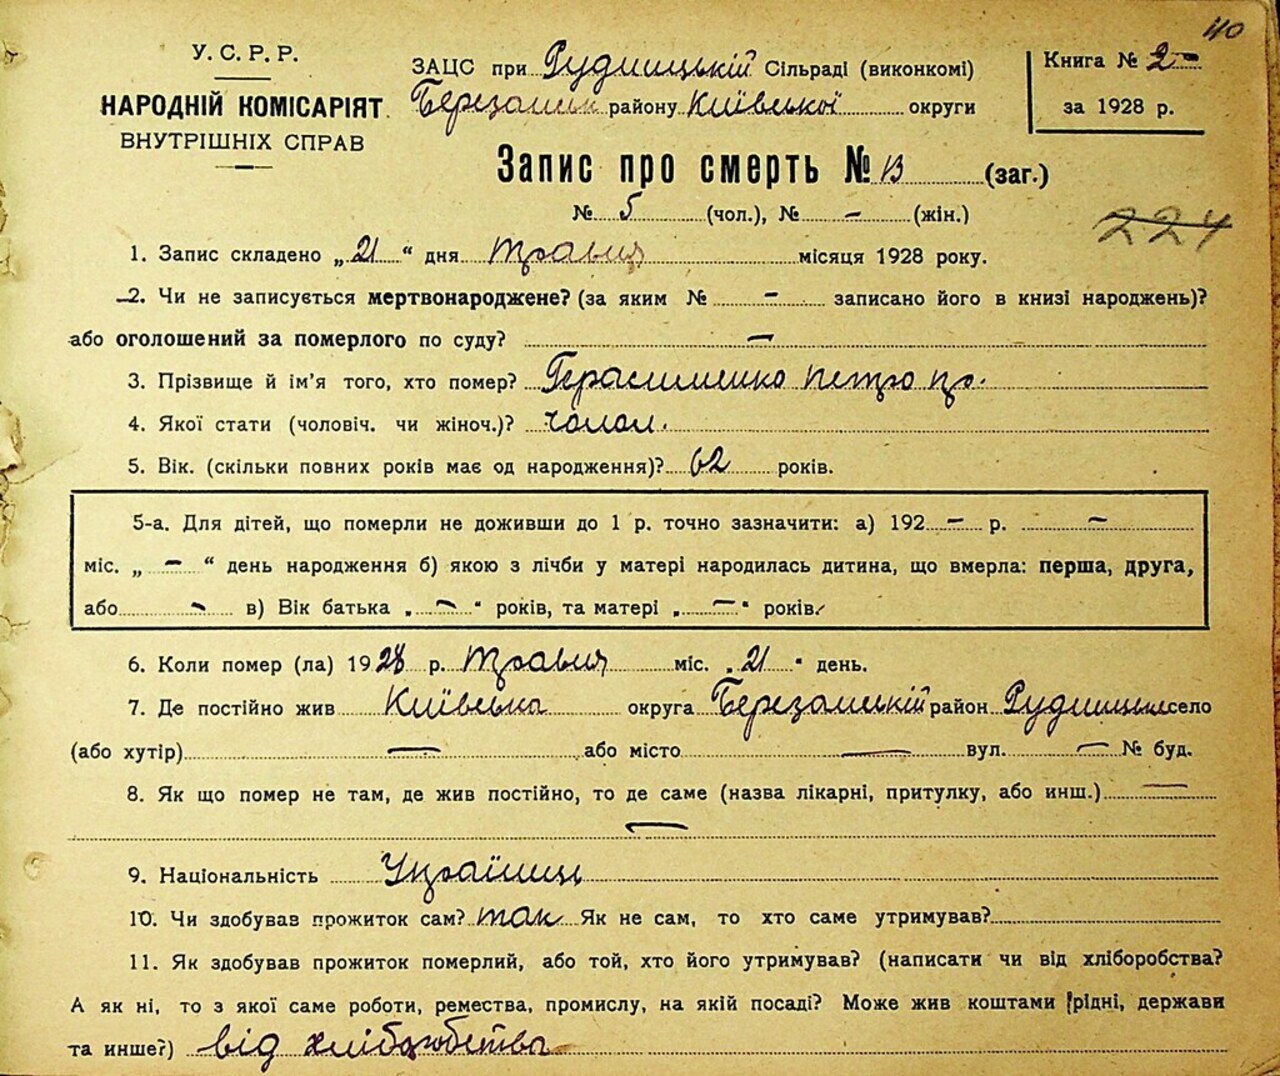 110
У. С. Р. Р.
НАРОДНІЙ КОМІСАРІЯТ
ВНУТРІШНІХ СПРАВ
ЗАЦС при Рудницькій Сільраді (виконкомі)
Березанськ району Київської округи
Книга № 2
за 1928 р.
Запис про смерть № 13 (заг.)
№ 5 (чол.), № – (жін.)
224
1. Запис складено „21“ дня травня місяця 1928 року.
2. Чи не записується мертвонароджене? (за яким № – записано його в книзі народжень)?
або оголошений за померлого по суду? –
3. Прізвище й ім’я того, хто помер? Герасименко Петро
4. Якої стати (чоловіч. чи жіноч.)? чолов.
5. Вік. (скільки повних років має од народження)? 62 років.
5-а. Для дітей, що померли не доживши до 1 р. точно зазначити: а) 192 – р. –
міс. „ – “ день народження б) якою з лічби у матері народилась дитина, що вмерла: перша, друга,
або – в) Вік батька „ – “ років, та матері „ – “ років.
6. Коли помер (ла) 1928 р. травня міс. „21“ день.
7. Де постійно жив Київська округа Березанський район Рудницьке село
(або хутір) – або місто – вул. – № буд.
8. Як що помер не там, де жив постійно, то де саме (назва лікарні, притулку, або инш.) –
–
9. Національність Українець
10. Чи здобував прожиток сам? так Як не сам, то хто саме утримував?
11. Як здобував прожиток померлий, або той, хто його утримував? (написати чи від хліборобства?
А як ні, то з якої саме роботи, ремества, промислу, на якій посаді? Може жив коштами рідні, держави
та инше?) від хліборобства